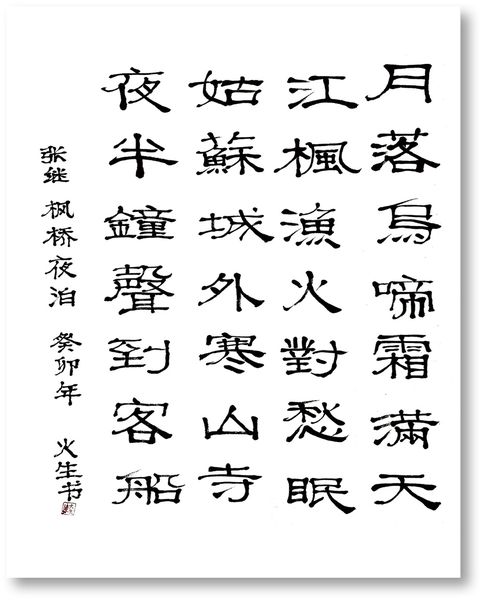 月落烏啼霜滿天
江楓漁火對愁眠
姑蘇城外寒山寺
夜半鐘聲到客船
张继 枫桥夜泊 癸卯年 火生书